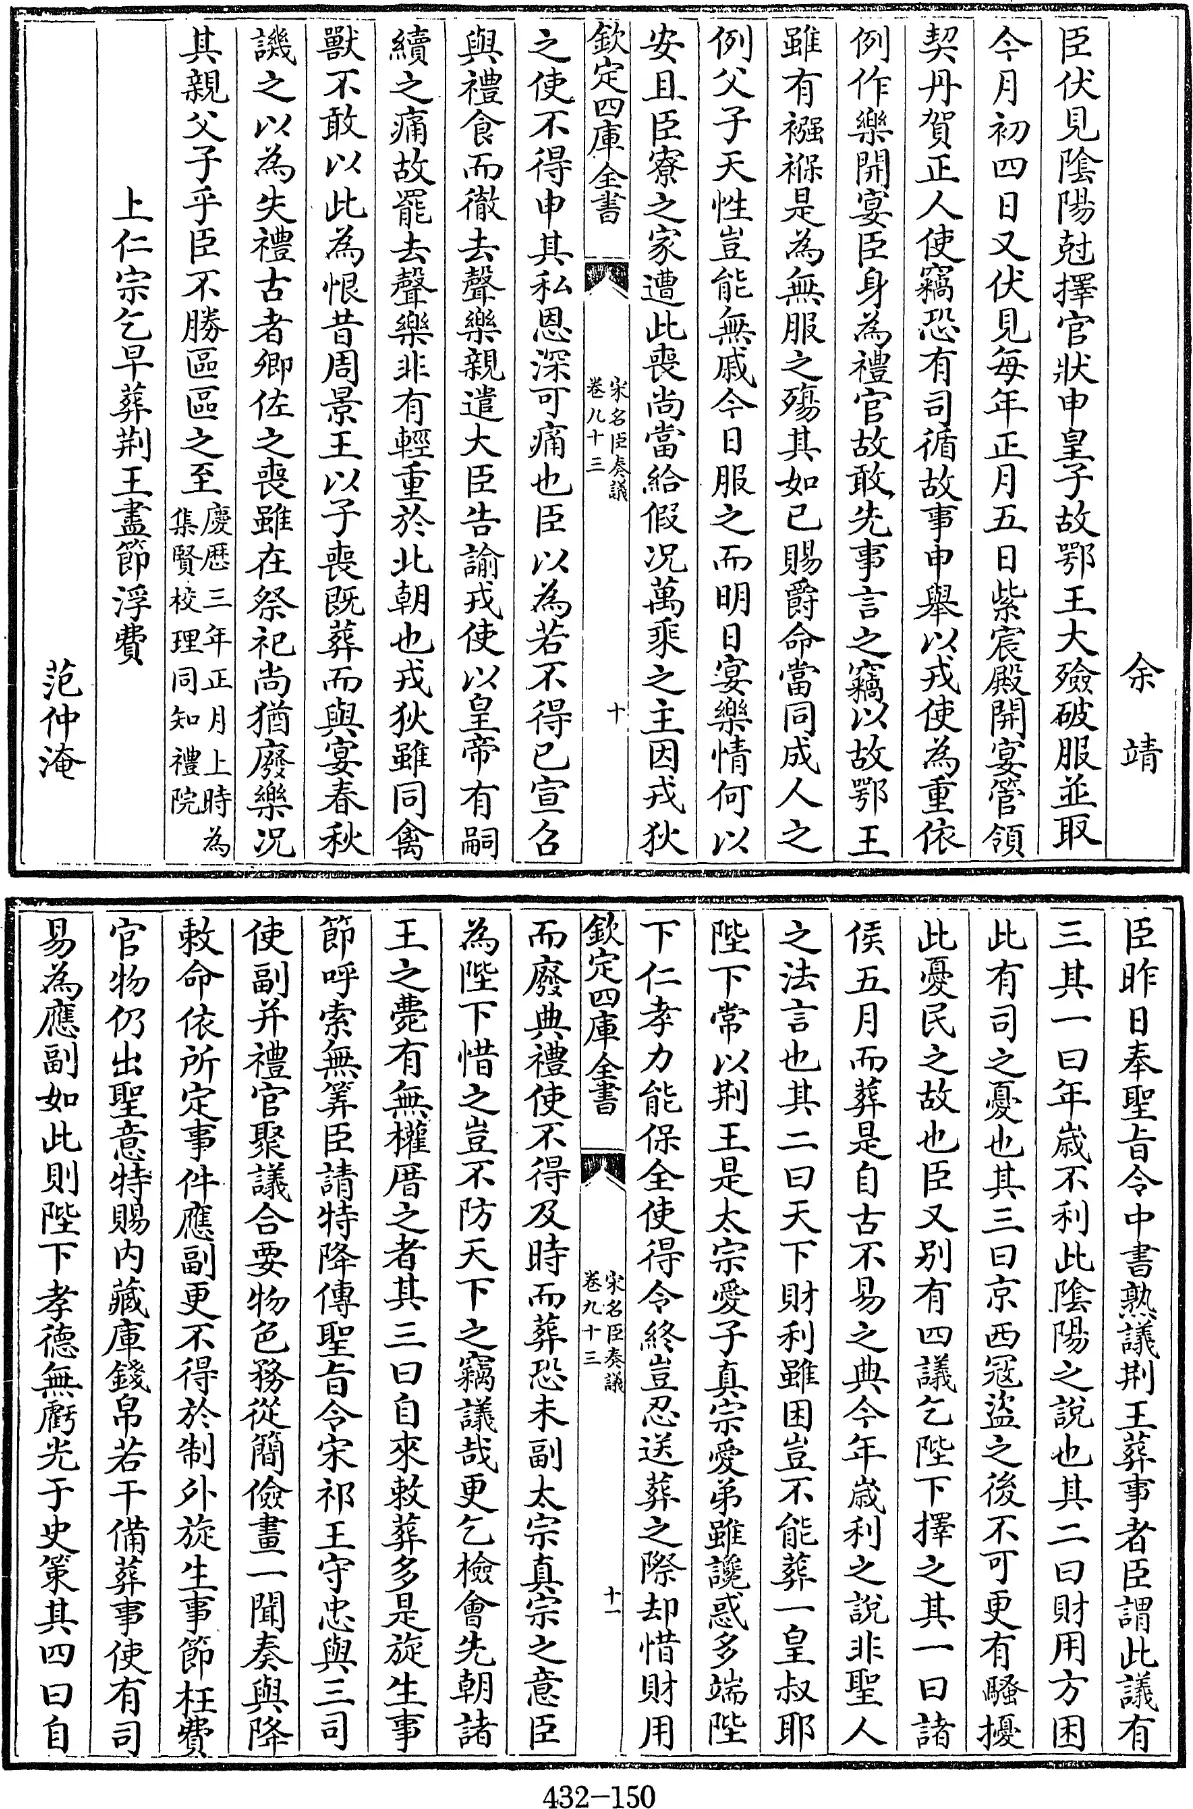 余靖
臣伏見陰陽尅擇官狀申皇子故鄂王大殮破服並取
今月初四日又伏見每年正月五日紫宸殿開宴管領
契丹賀正人使竊恐有司循故事申舉以戎使為重依
例作樂開宴臣身為禮官故敢先事言之竊以故鄂王
雖有襁褓是為無服之殤其如已賜爵命當同成人之
例父子天性豈能無戚今日服之而明日宴樂情何以
安且臣寮之家遭此喪尚當給假况萬乘之主因戎狄
欽定四庫全書
宋名臣奏議
卷九十三
十
之使不得申其私恩深可痛也臣以為若不得已宣召
與禮食而徹去聲樂親遣大臣告諭戎使以皇帝有嗣
續之痛故罷去聲樂非有輕重於北朝也戎狄雖同禽
獸不敢以此為恨昔周景王以子喪既葬而與宴春秋
譏之以為失禮古者卿佐之喪雖在祭祀尚猶廢樂况
其親父子乎臣不勝區區之至慶歷三年正月上時為
集賢校理同知禮院
上仁宗乞早葬荆王盡節浮費
范仲淹
臣昨日奉聖旨令中書熟議荆王葬事者臣謂此議有
三其一曰年嵗不利此陰陽之說也其二曰財用方困
此有司之憂也其三曰京西寇盜之後不可更有騷擾
此憂民之故也臣又别有四議乞陛下擇之其一曰諸
侯五月而葬是自古不易之典今年嵗利之說非聖人
之法言也其二曰天下財利雖困豈不能葬一皇叔耶
陛下常以荆王是太宗愛子真宗愛弟雖讒惑多端陛
下仁孝力能保全使得令終豈忍送葬之際却惜財用
欽定四庫全書
宋名臣奏議
卷九十三
十一
而廢典禮使不得及時而葬恐未副太宗真宗之意臣
為陛下惜之豈不防天下之竊議哉更乞檢會先朝諸
王之薨有無權厝之者其三曰自來敕葬多是旋生事
節呼索無筭臣請特降傳聖旨令宋祁王守忠與三司
使副并禮官聚議合要物色務從簡儉畫一聞奏與降
敕命依所定事件應副更不得於制外旋生事節枉費
官物仍出聖意特賜内藏庫錢帛若干備葬事使有司
易為應副如此則陛下孝德無虧光于史策其四曰自
432-150